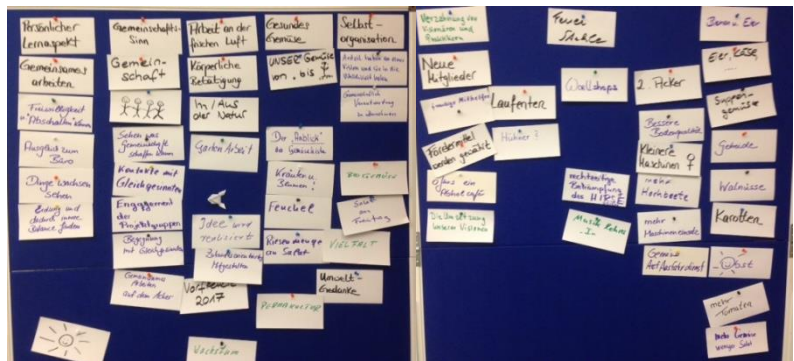 Persönlicher
Lernaspekt
Gemeinsames
arbeiten
Freiwilligkeit
Ausgleich zum
Büro
Dinge wachsen
Sehen
Erdung und
dadurch innere
Balance finden
Gemeinschafts-
Sinn
Gemein-
schaft
Sehen was
Gemeinschaft
schaffen kann
Kontakte mit
Gleichgesinnten
Engagement
der
Projektgruppen
Begegnung
mit Gleichgesinnten
Gemeinsames
Arbeiten
auf dem Acker
Arbeit an der
frischen Luft
Körperliche
Betätigung
In / Aus
der Natur
Garten Arbeit
Idee wird
realisiert
Mitgestalten
Vorfreude
2017
Wachstum
Gesundes
Gemüse
UNSER Gemüse
von . bis
Der "Anblick"
der Gemüsekiste
Kräuter u.
Blumen!
Fenchel
Riesenmenge
an Salat
PERMAKULTUR
Selbst-
organisation
Anteil haben an einer
Vision und sie in die
Wirklichkeit holen
Verantwortung
Salat
am
Freitag
VIELFALT
Umwelt-
Gedanke
Verzahnung von
Visionären und
Neue
Mitglieder
Fördermittel
werden gewährt
öfters ein
Hofcafé
Die Umsetzung
unserer Visionen
Laufenten
Hühner?
Workshops
rechtzeitige
Bekämpfung
der HIRSE
2. Acker
Bessere
Bodenqualität
Kleinere
Maschinen
mehr
Hochbeete
mehr
Maschineneinsatz
Gemüse
Auf Ausfahrdienst
Eier, Käse
....
Suppen-
gemüse
Getreide
Walnüsse
Karotten
Obst
mehr
Tomaten
mehr Gemüse
weniger Salat